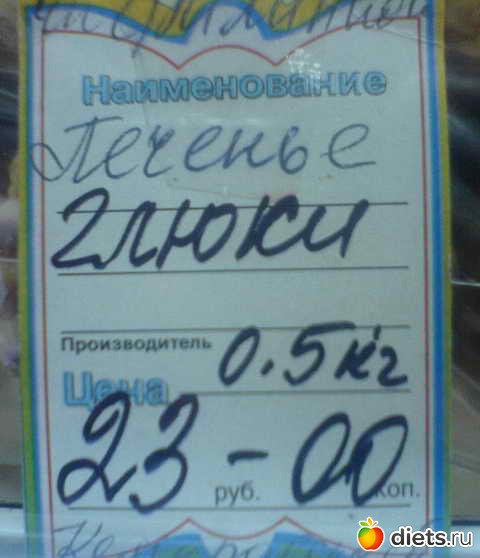 Наименование
Печенье
глюки
Производитель
0.5 кг
Цена
23 - 00
руб. коп.
diets.ru